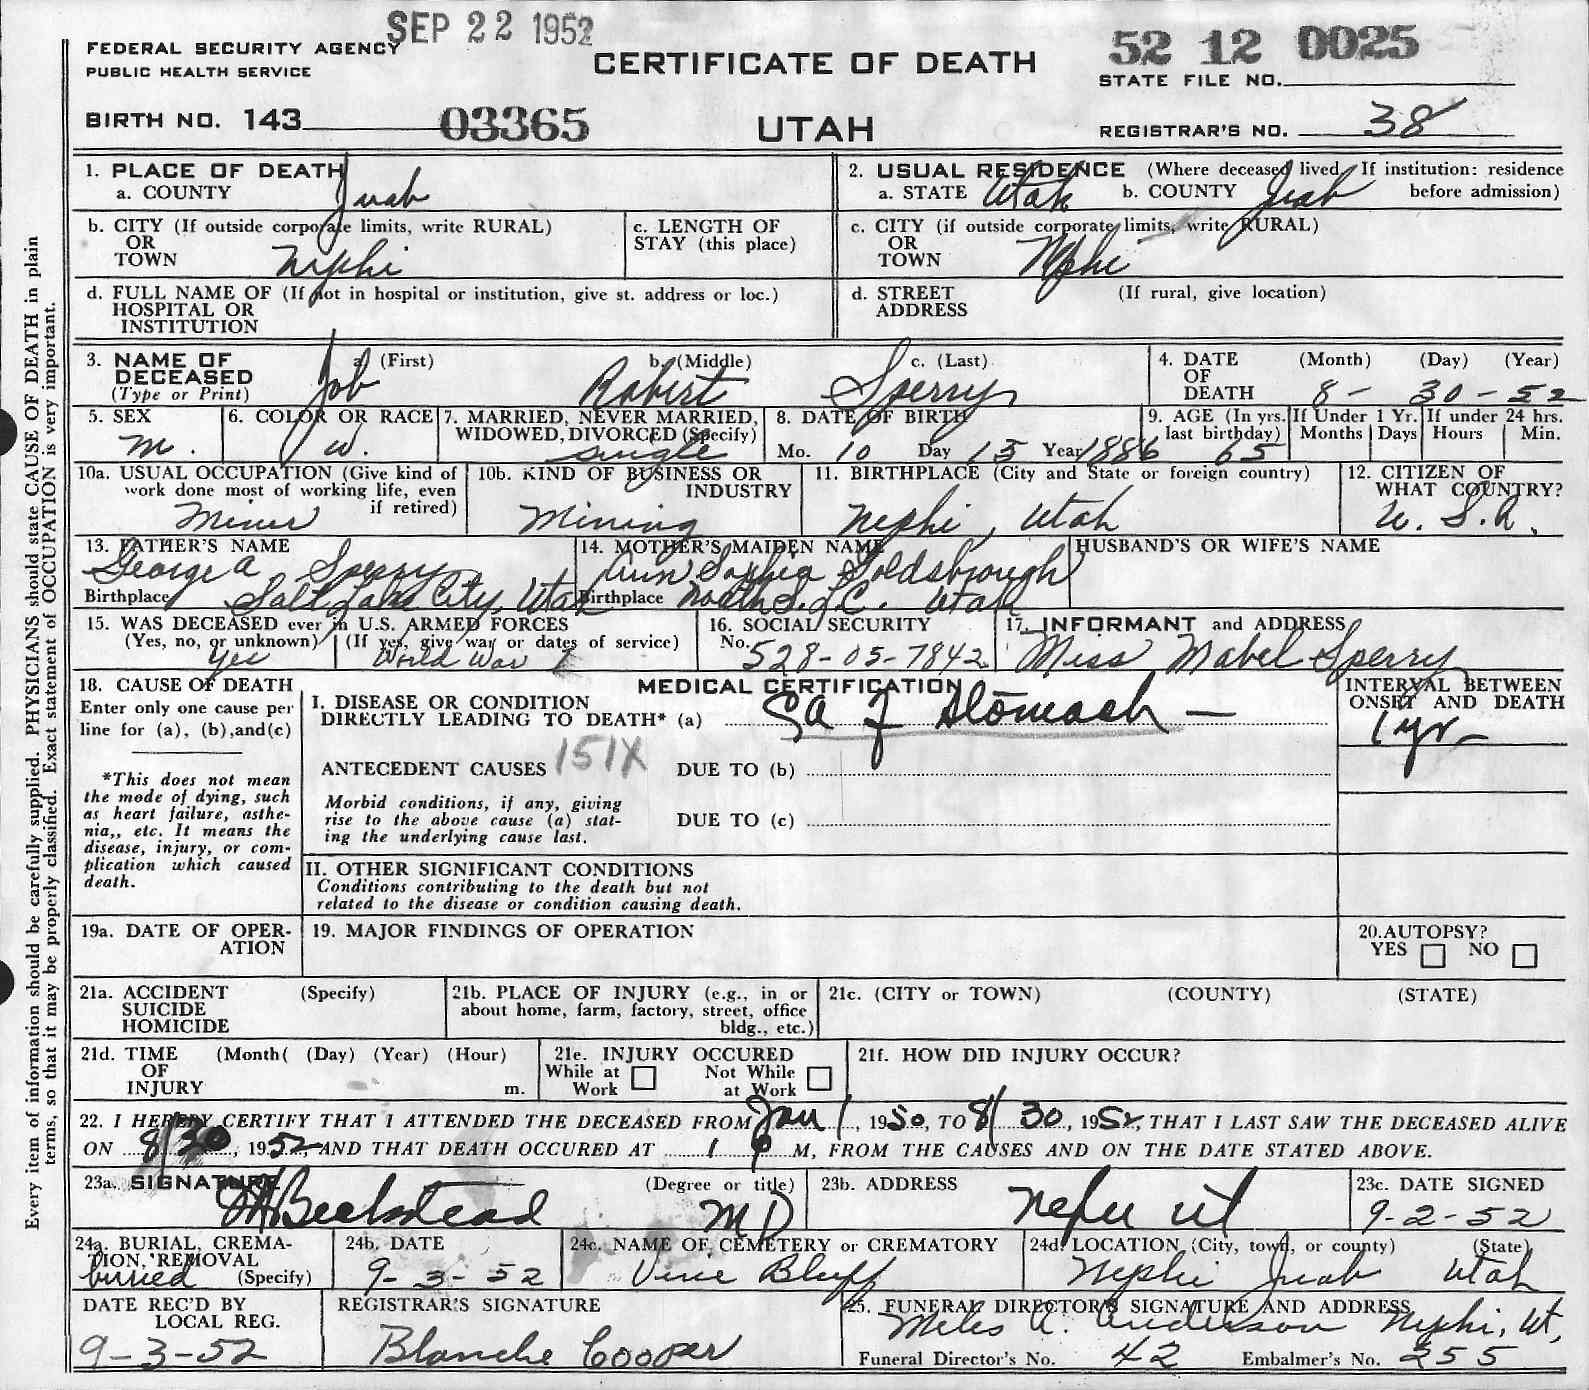 SEP 22 1952
FEDERAL SECURITY AGENCY
PUBLIC HEALTH SERVICE
CERTIFICATE OF DEATH
52 12 0025
STATE FILE NO.
BIRTH NO. 143 03365
UTAH
REGISTRAR'S NO. 38
Every item of information should be carefully supplied. PHYSICIANS should state CAUSE OF DEATH in plain
terms, so that it may be properly classified. Exact statement of OCCUPATION is very important.
1. PLACE OF DEATH
a. COUNTY Juab
2. USUAL RESIDENCE (Where deceased lived. If institution: residence
a. STATE Utah b. COUNTY Juab before admission)
b. CITY (If outside corporate limits, write RURAL)
OR
TOWN Nephi
c. LENGTH OF
STAY (this place)
c. CITY (if outside corporate limits, write RURAL)
OR
TOWN Nephi
d. FULL NAME OF (If not in hospital or institution, give st. address or loc.)
HOSPITAL OR
INSTITUTION
d. STREET (If rural, give location)
ADDRESS
3. NAME OF DECEASED
(Type or Print)
a. (First) b. (Middle) c. (Last)
Job Robert Sperry
4. DATE OF DEATH (Month) (Day) (Year)
8 - 30 - 52
5. SEX
M.
6. COLOR OR RACE
W.
7. MARRIED, NEVER MARRIED,
WIDOWED, DIVORCED (Specify)
Single
8. DATE OF BIRTH
Mo. 10 Day 13 Year 1886
9. AGE (In yrs.
last birthday)
65
If Under 1 Yr.
Months Days
If under 24 hrs.
Hours Min.
10a. USUAL OCCUPATION (Give kind of
work done most of working life, even
if retired)
Miner
10b. KIND OF BUSINESS OR
INDUSTRY
Mining
11. BIRTHPLACE (City and State or foreign country)
Nephi, Utah
12. CITIZEN OF
WHAT COUNTRY?
U. S. A.
13. FATHER'S NAME
George A Sperry
Birthplace Salt Lake City, Utah
14. MOTHER'S MAIDEN NAME
Ann Sophia Goldsbrough
Birthplace North S.L.C. Utah
HUSBAND'S OR WIFE'S NAME
15. WAS DECEASED ever in U.S. ARMED FORCES
(Yes, no, or unknown) (If yes, give war or dates of service)
Yes World War 1
16. SOCIAL SECURITY
No. 528-05-7842
17. INFORMANT and ADDRESS
Miss Mabel Sperry
18. CAUSE OF DEATH
Enter only one cause per
line for (a), (b), and (c)
*This does not mean
the mode of dying, such
as heart failure, asthe-
nia,, etc. It means the
disease, injury, or com-
plication which caused
death.
MEDICAL CERTIFICATION
I. DISEASE OR CONDITION
DIRECTLY LEADING TO DEATH* (a) Ca of Stomach —
INTERVAL BETWEEN
ONSET AND DEATH
1 yr
ANTECEDENT CAUSES 151X DUE TO (b)
Morbid conditions, if any, giving
rise to the above cause (a) stat-
ing the underlying cause last.
DUE TO (c)
II. OTHER SIGNIFICANT CONDITIONS
Conditions contributing to the death but not
related to the disease or condition causing death.
19a. DATE OF OPER-
ATION
19. MAJOR FINDINGS OF OPERATION
20. AUTOPSY?
YES NO
21a. ACCIDENT (Specify)
SUICIDE
HOMICIDE
21b. PLACE OF INJURY (e.g., in or
about home, farm, factory, street, office
bldg., etc.)
21c. (CITY or TOWN) (COUNTY) (STATE)
21d. TIME (Month( (Day) (Year) (Hour)
OF
INJURY m.
21e. INJURY OCCURED
While at Work Not While at Work
21f. HOW DID INJURY OCCUR?
22. I HEREBY CERTIFY THAT I ATTENDED THE DECEASED FROM Jan 1, 1950, TO 8/30, 1952, THAT I LAST SAW THE DECEASED ALIVE
ON 8/30, 1952, AND THAT DEATH OCCURED AT 1 P M, FROM THE CAUSES AND ON THE DATE STATED ABOVE.
23a. SIGNATURE (Degree or title)
Beckstead MD
23b. ADDRESS
Nephi Ut
23c. DATE SIGNED
9-2-52
24a. BURIAL, CREMA-
TION, REMOVAL
buried (Specify)
24b. DATE
9-3-52
24c. NAME OF CEMETERY or CREMATORY
Vine Bluff
24d. LOCATION (City, town, or county) (State)
Nephi Juab Utah
DATE REC'D BY
LOCAL REG.
9-3-52
REGISTRAR'S SIGNATURE
Blanche Cooper
25. FUNERAL DIRECTOR'S SIGNATURE AND ADDRESS
Miles A. Anderson Nephi, Ut,
Funeral Director's No. 42 Embalmer's No. 255